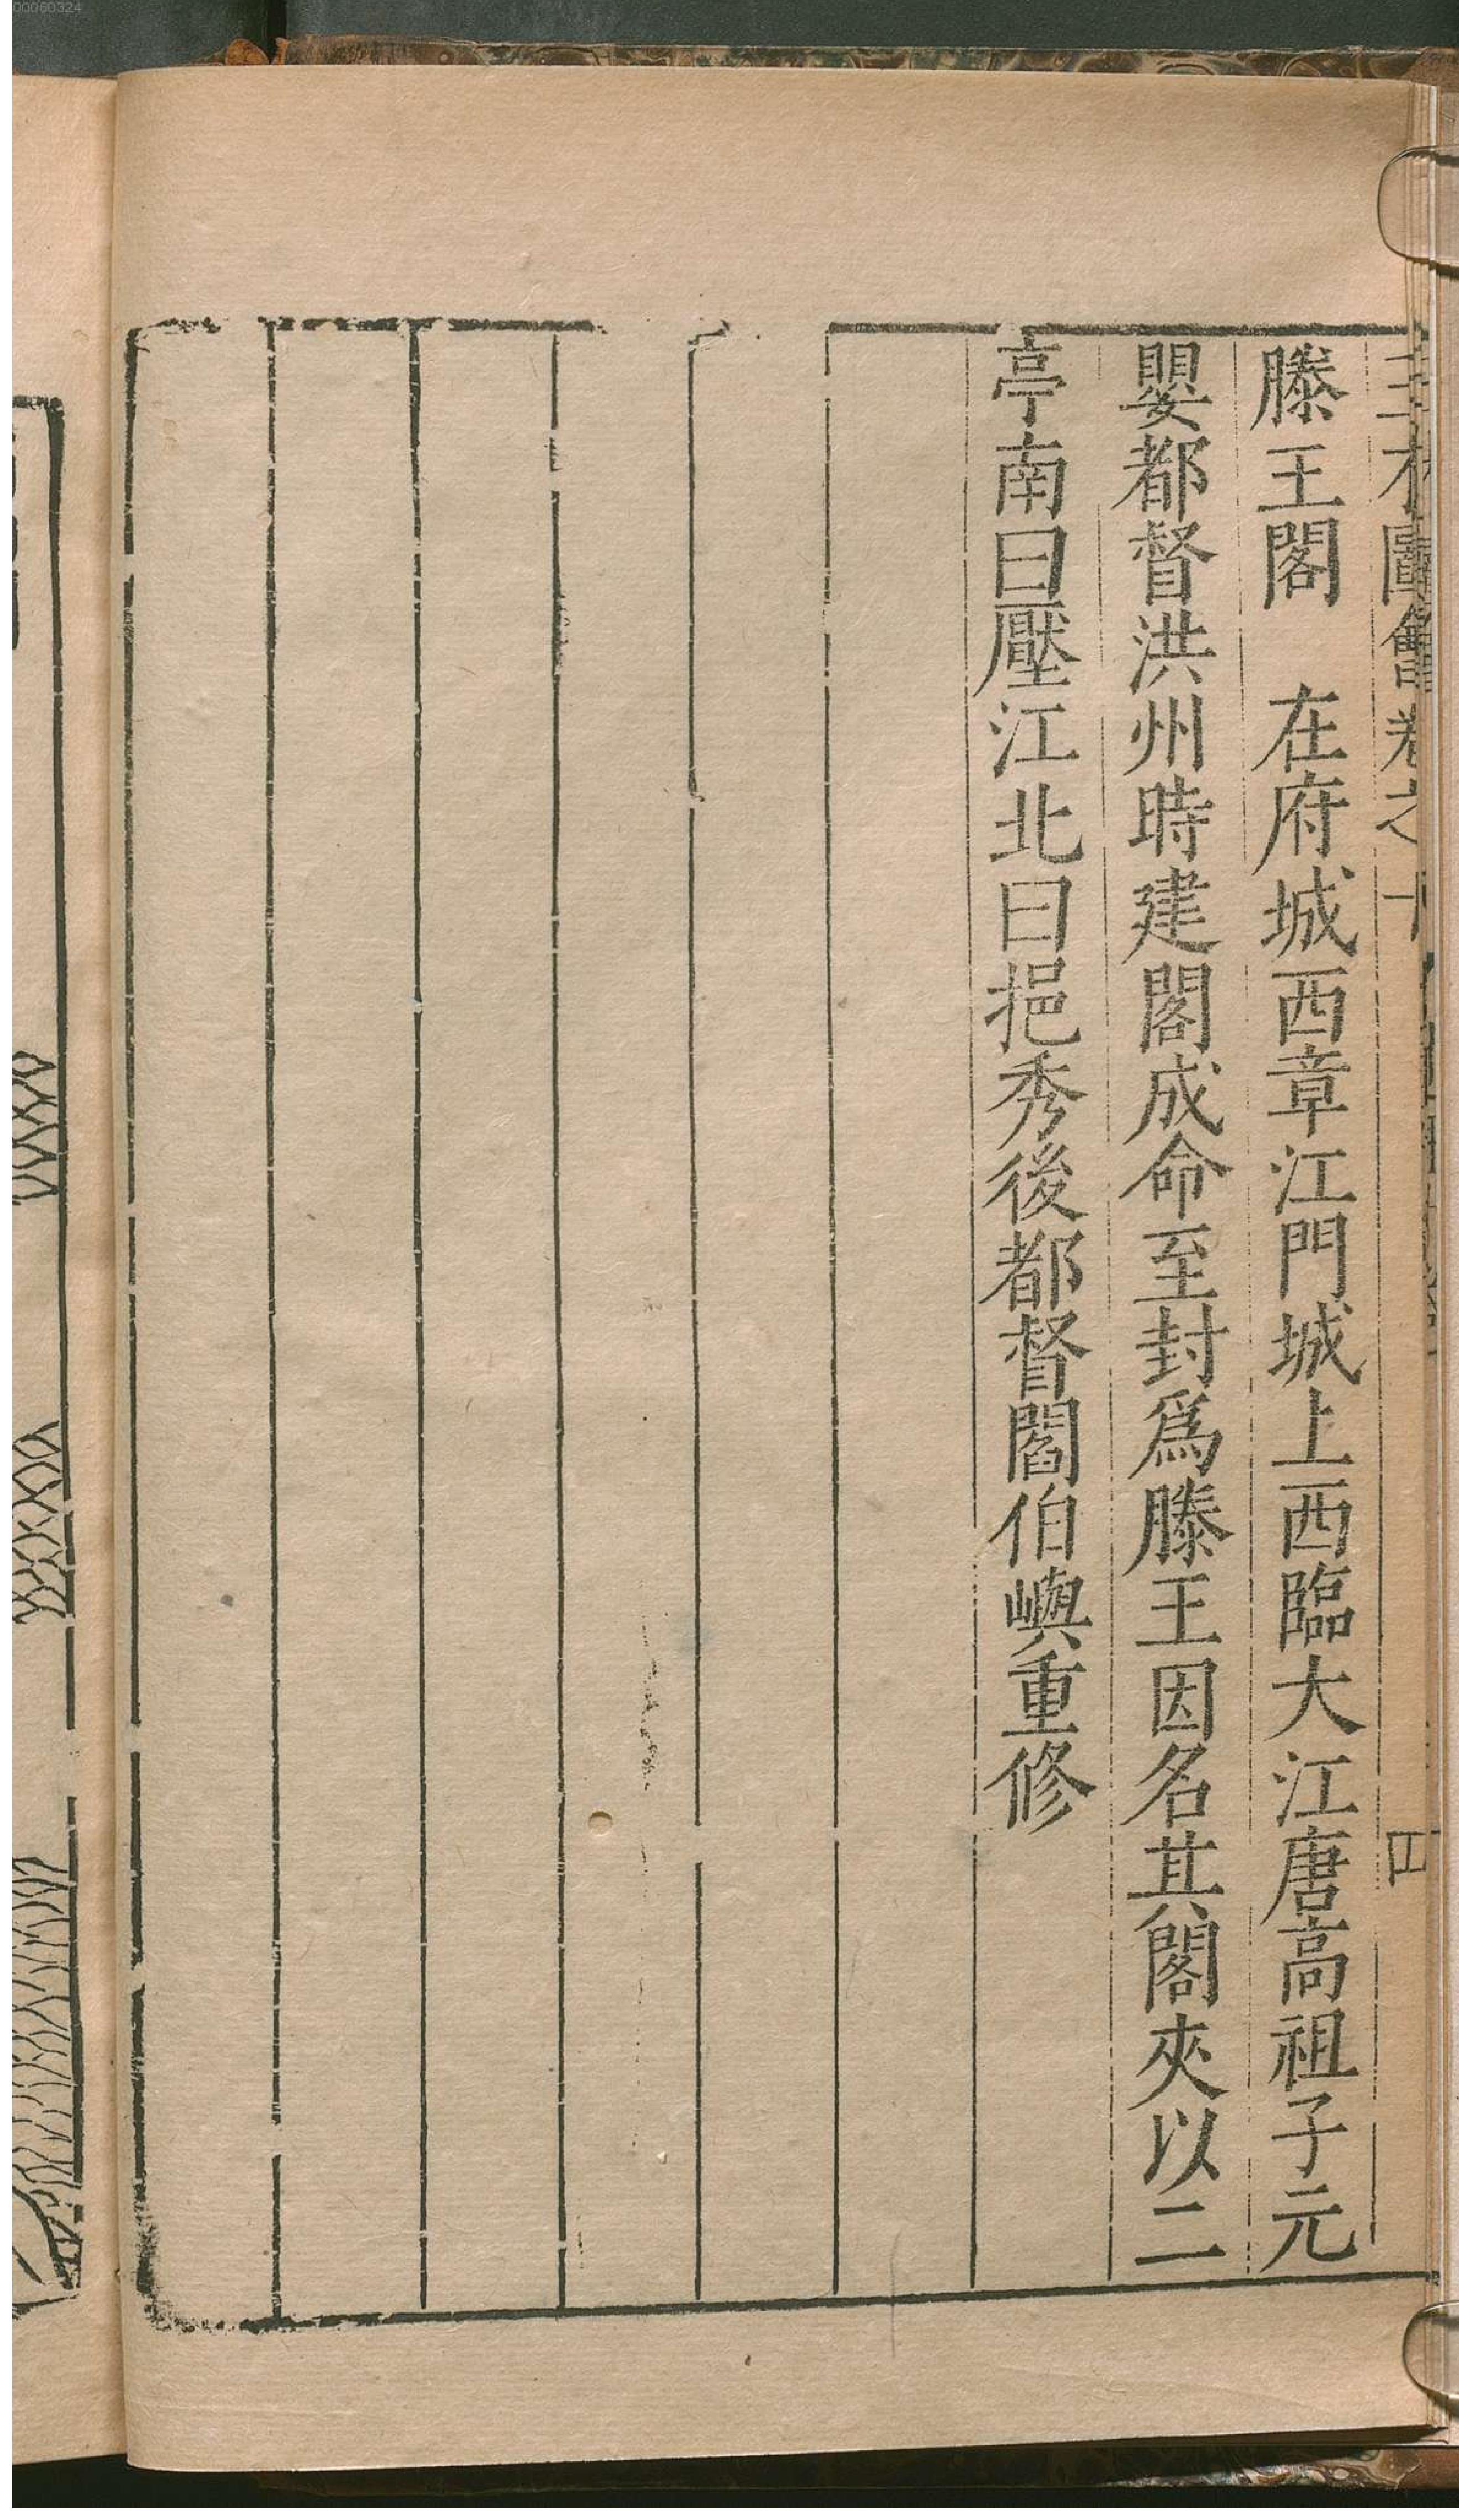 三才圖會卷之十
四
滕王閣　在府城西章江門城上西臨大江唐高祖子元
嬰都督洪州時建閣成命至封爲滕王因名其閣夾以二
亭南曰壓江北曰挹秀後都督閻伯嶼重修
00060324